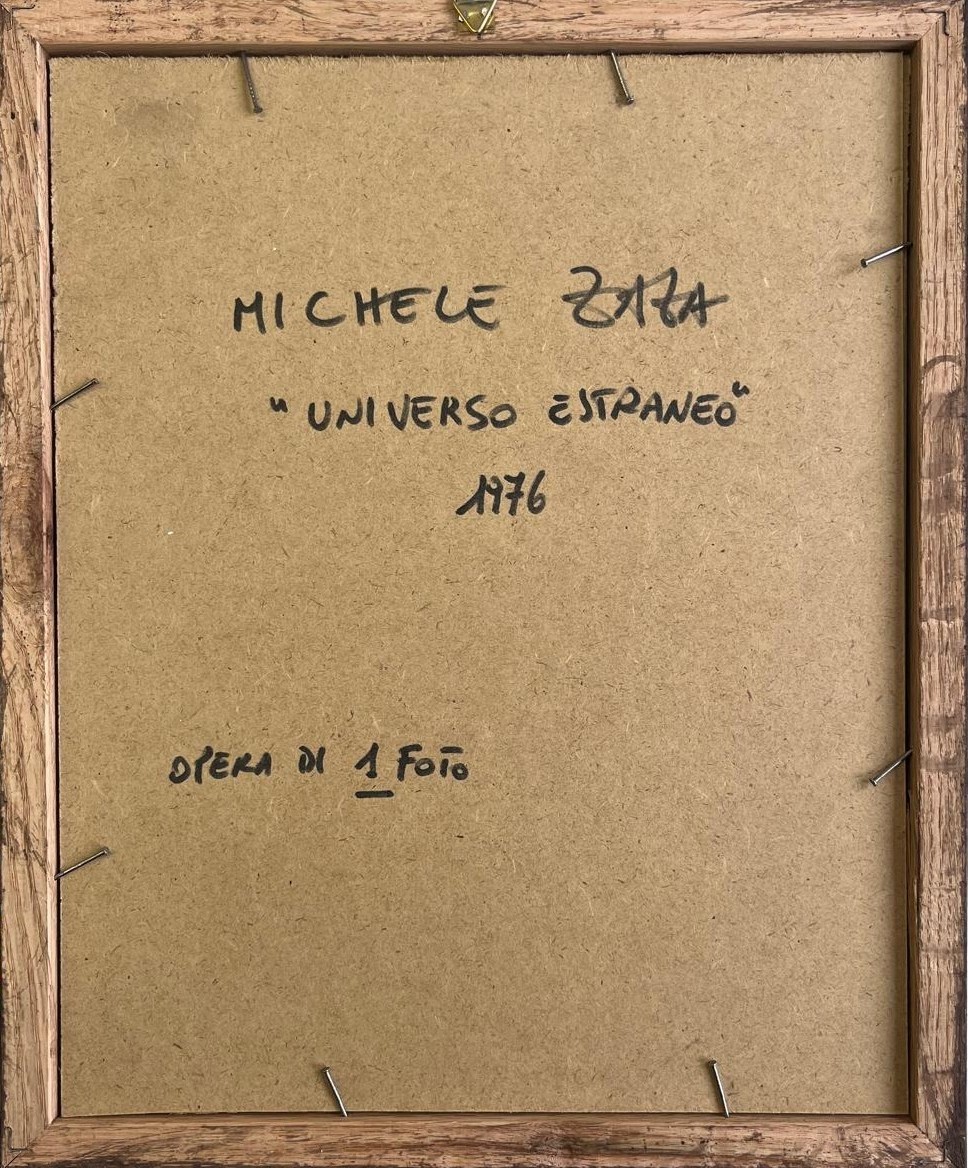 MICHELE ZAZA
"UNIVERSO ESTRANEO"
1976
OPERA DI 1 FOTO